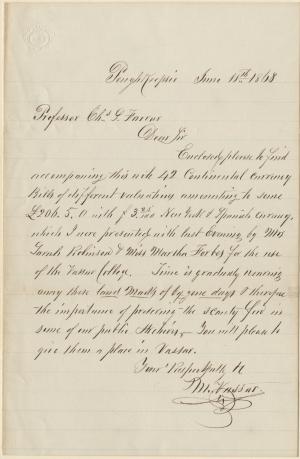 Poughkeepsie June 18th 1868
Professor Chs. S. Farrar
Dear Sir
Enclosed please to find
accompaning this note 42 Continental Currency
Bills of different valuations amounting to some
£206.5.0 with $3.25/100 New York & Spanish Currency,
which I were presented with last Evening by Mrs
Sarah Robinson & Miss Martha Forbes for the use
of the Vassar College. Time is gradually wearing
away these land Marks of by gone days & therefore
the importance of preserving the scanty few in
some of our public You will please to
give them a place in Vassar.
Your Respectfully
M. Vassar